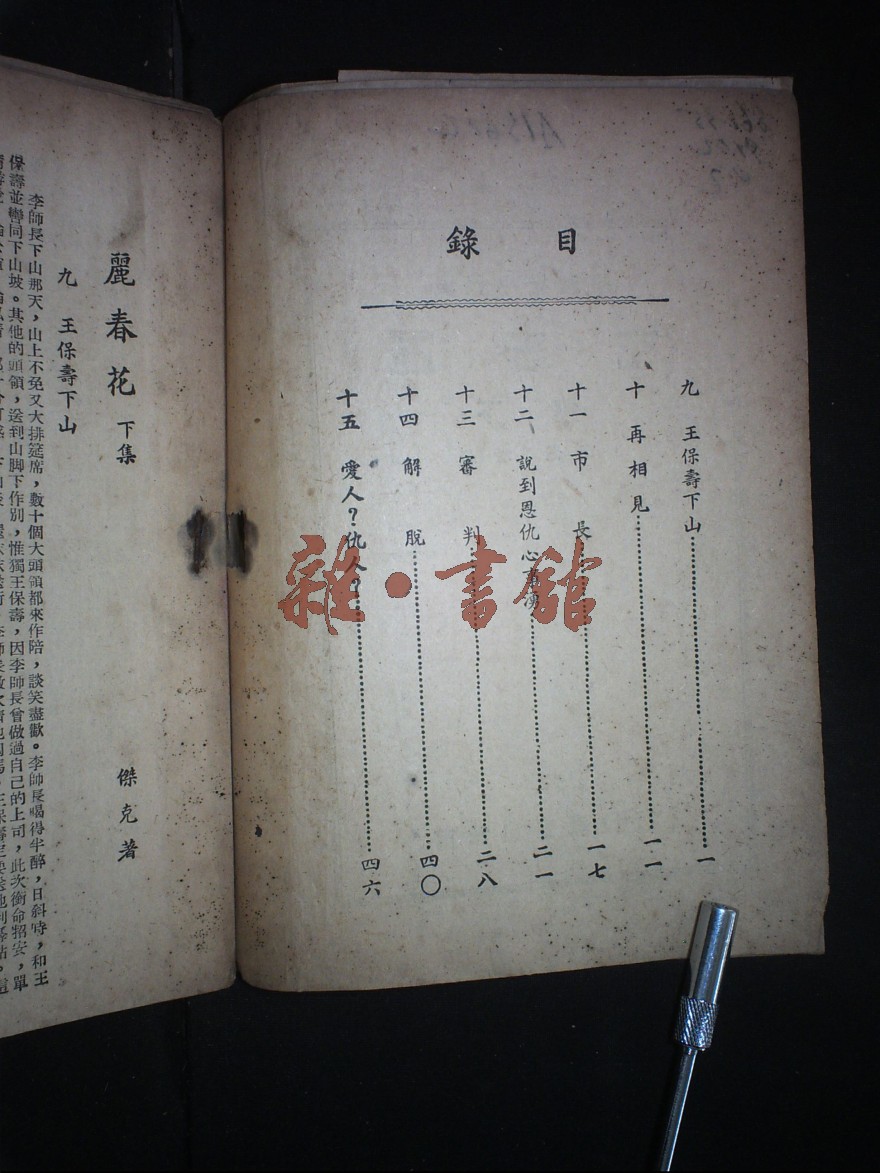 目錄
九 王保壽下山 一
十 再相見 一一
十一 市長 一七
十二 說到恩仇心 二一
十三 審判 二八
十四 解脫 四〇
十五 愛人？仇人？ 四六
雜·書館
麗春花 下集 傑克著
九 王保壽下山
李師長下山那天，山上不免又大排筵席，數十個大頭領都來作陪，談笑盡歡。李師長喝得半醉，日斜時，和王
保壽並轡同下山坡。其他的頭領，送到山脚下作別，惟獨王保壽，因李師長曾做過自己的上司，此次銜命招安，單